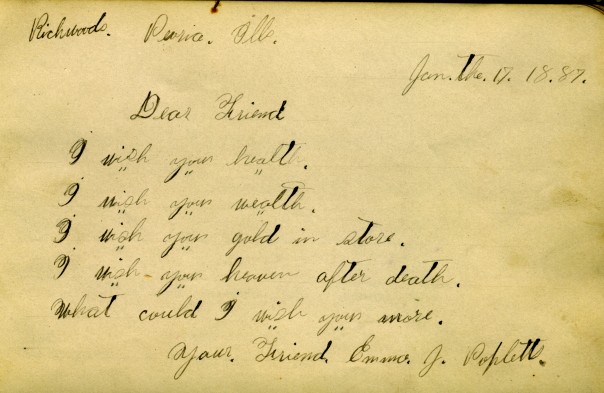 Richwoods. Peoria. Ills.
Jan. the. 17. 18.87.
Dear Friend
I wish your health.
I wish your wealth.
I wish your gold in store.
I wish your heaven after death.
What could I wish your more.
Your. Friend. Emma. J. Poplett.